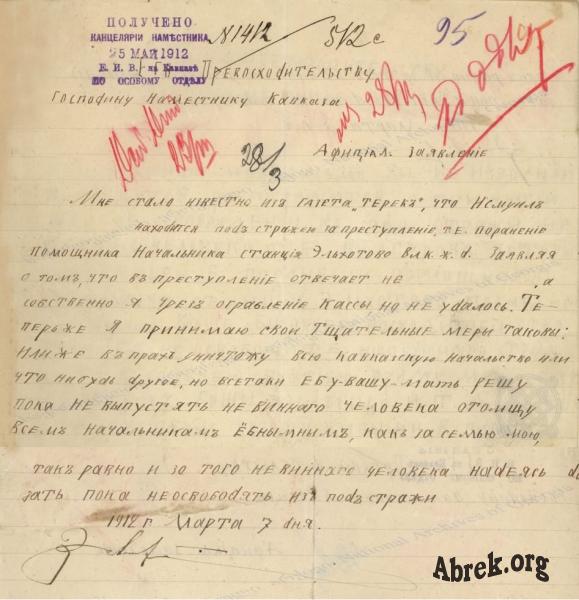 ПОЛУЧЕНО
КАНЦЕЛЯРІИ НАМѢСТНИКА
25 МАЙ 1912
Е. И. В. на Кавказѣ
ПО ОСОБОМУ ОТДѢЛУ
№1412
512 с
95
Превосходительству
Господину Наместнику Кавказа
28/3
Афиціал. Заявление
Мне стало известно изъ газета „Терекъ", что Исмуилъ
находится подъ стражею за преступление, т.е. поранение
помощника Начальника станція Эльхотово Влк. ж. д. Заявляя
о томъ, что въ преступление отвечает не , а
собственно я чрезъ ограбление Кассы но не удалось. Те-
перь же я принимаю свои тщательные меры таковы:
или же въ прах уничтожу всю Кавказскую начальство или
что нибудь другое, но всетаки ебу-вашу-мать решу
пока не выпустятъ не виннаго человека отомщу
всемъ начальникамъ ёбнымнымъ, какъ за семью мою,
такъ равно и за того невиннаго человека надеясь
зать пока неосвободятъ изъ подъ стражи
1912 г. Марта 7 дня.
Abrek.org